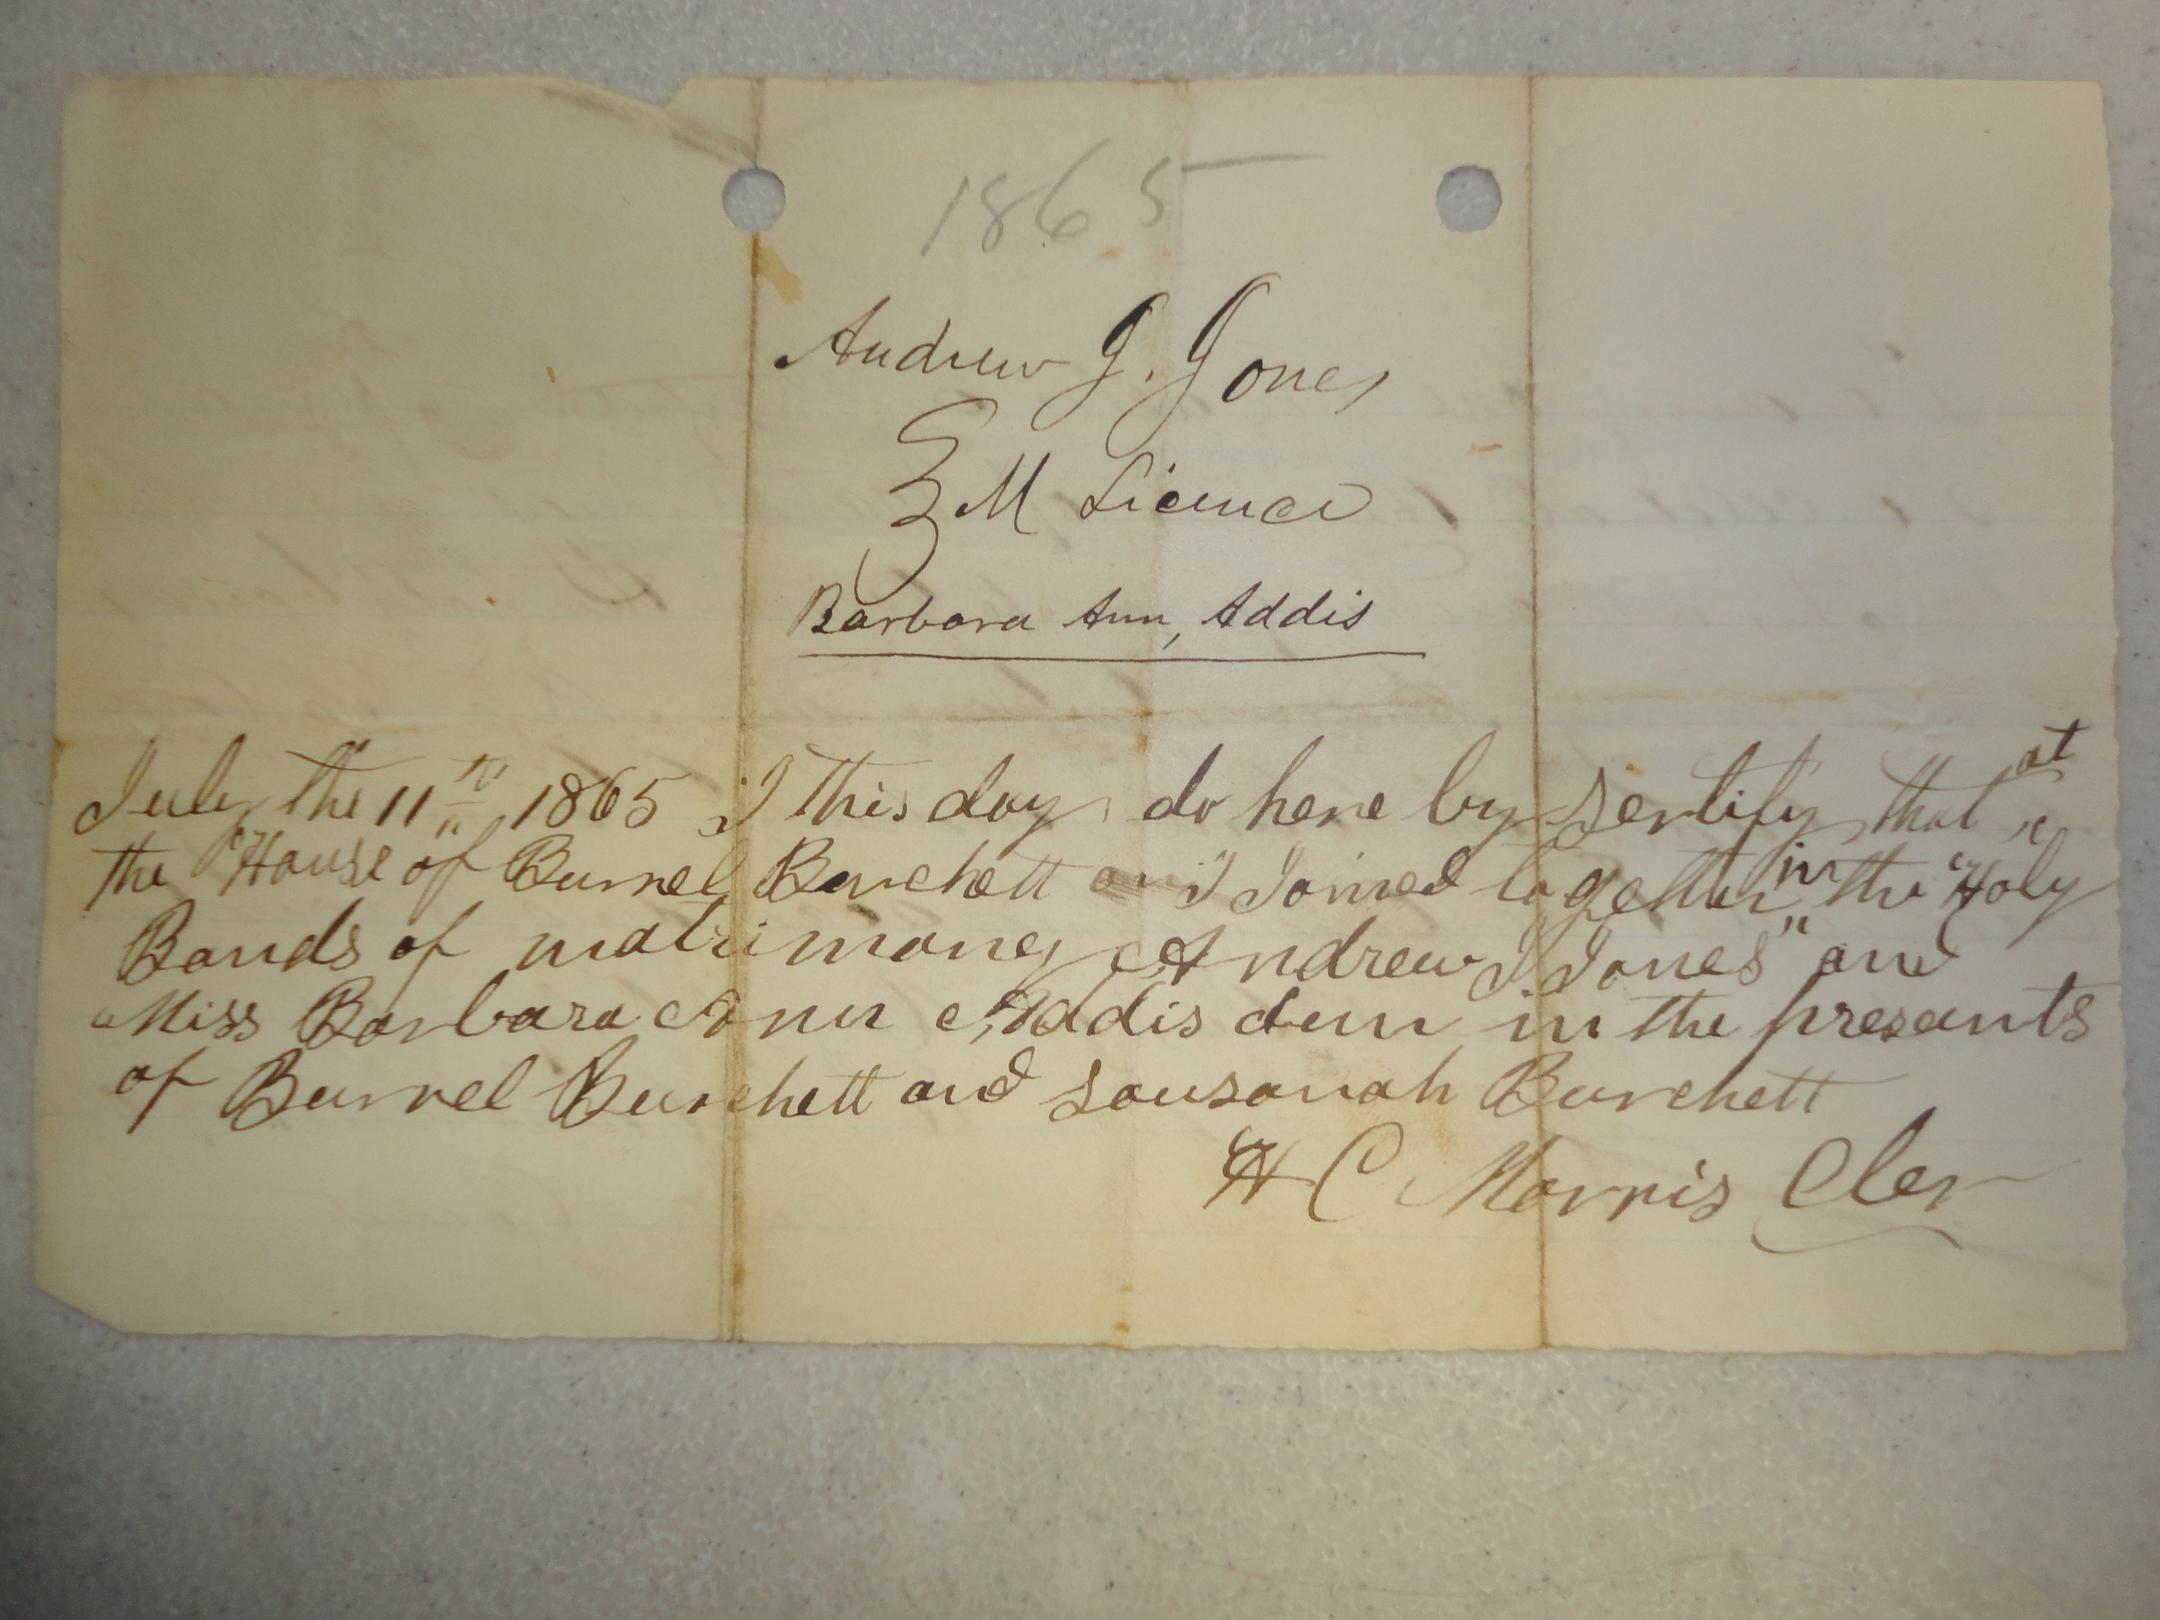 1865
Andrew J. Jones
M Licence
Barbara Ann, Addis
July the 11th 1865 I this day do here by sertify that at
the House of Burrel Burchett I Joined together in the Holy
Bands of matrimoney Andrew J Jones" and
Miss Barbara Ann Addis dun in the presants
of Burrel Burchett and Sousanah Burchett
H C Morris Cler